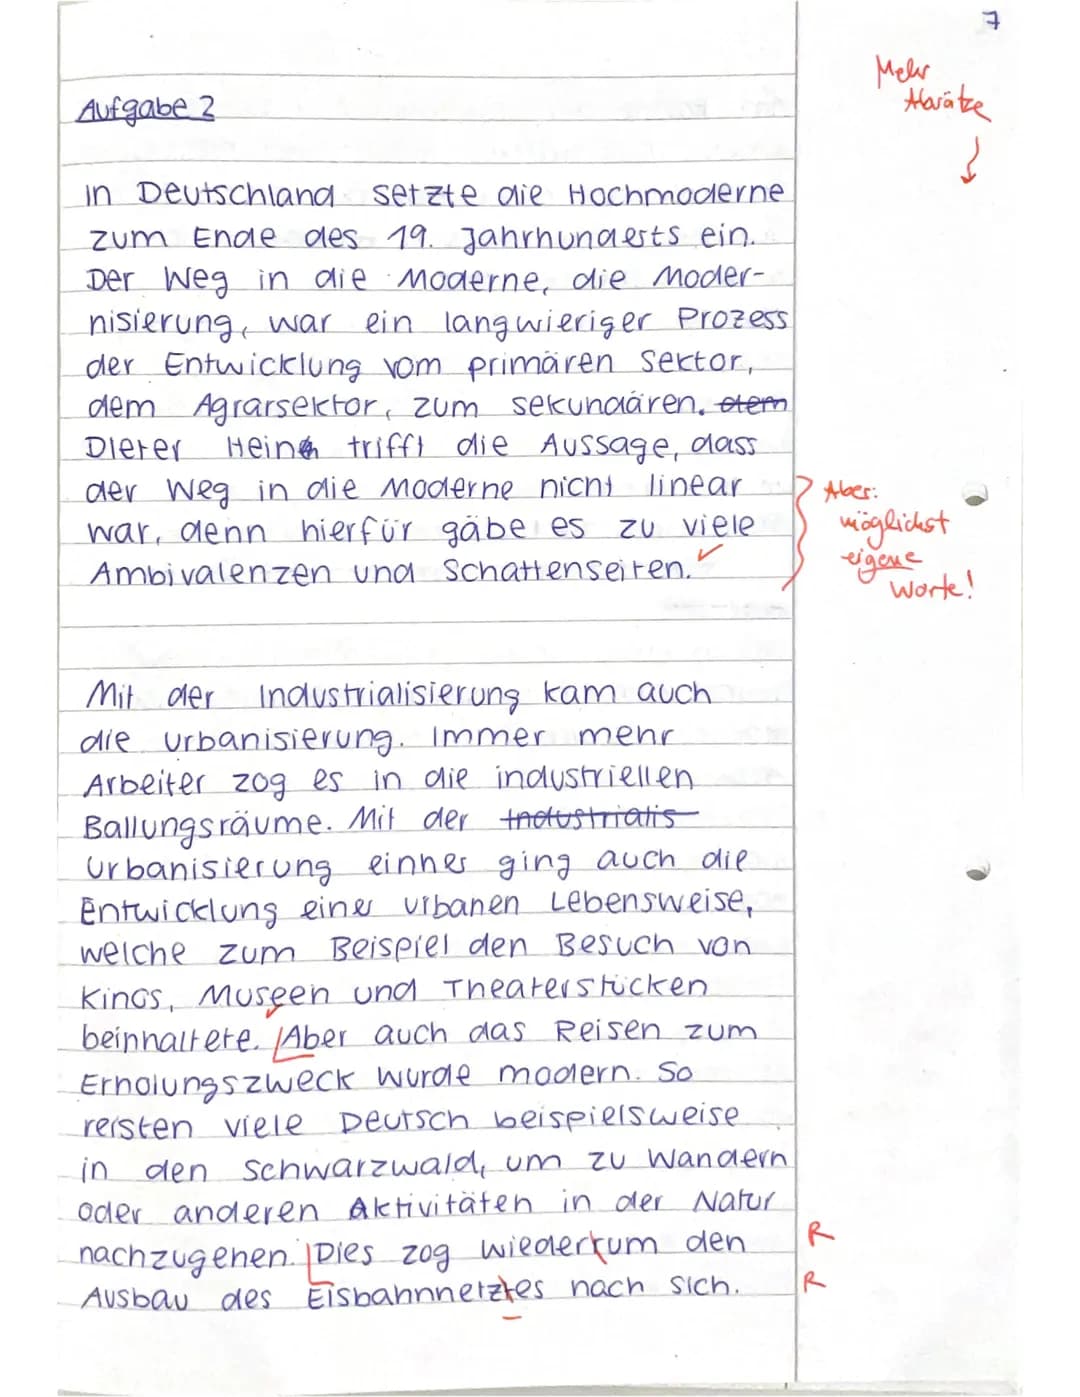 7
Mehr
Absätze
Aufgabe 2
in Deutschland setzte die Hochmoderne
zum Ende des 19. Jahrhunderts ein.
Der Weg in die Moderne, die Moder-
nisierung, war ein langwieriger Prozess
der Entwicklung vom primären Sektor,
dem Agrarsektor, zum sekundären. dem
Dieter Hein trifft die Aussage, dass
der Weg in die Moderne nicht linear
war, denn hierfür gäbe es zu viele
Ambivalenzen und Schattenseiten.
Aber:
möglichst
eigene
Worte!
Mit der Industrialisierung kam auch
die Urbanisierung. Immer mehr
Arbeiter zog es in die industriellen
Ballungsräume. Mit der Industrialis
Urbanisierung einher ging auch die
Entwicklung einer urbanen Lebensweise,
welche zum Beispiel den Besuch von
Kinos, Museen und Theaterstücken
beinhaltete. Aber auch das Reisen zum
Erholungszweck wurde modern. So
reisten viele Deutsch beispielsweise
in den Schwarzwald, um zu Wandern
oder anderen Aktivitäten in der Natur
nachzugehen. Dies zog wiederrum den R
Ausbau des Eisbahnnetztes nach sich. R